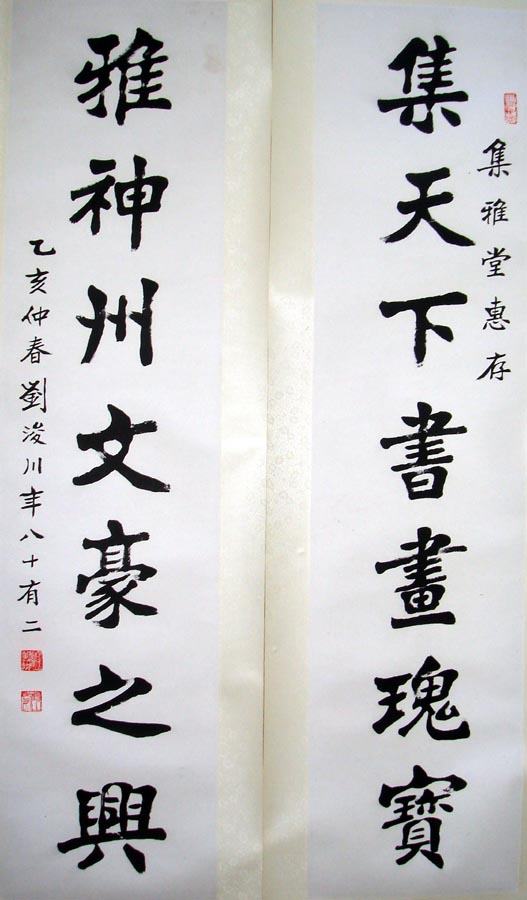 集雅堂惠存
集天下書畫瑰寶
雅神州文豪之興
乙亥仲春劉浚川年八十有二